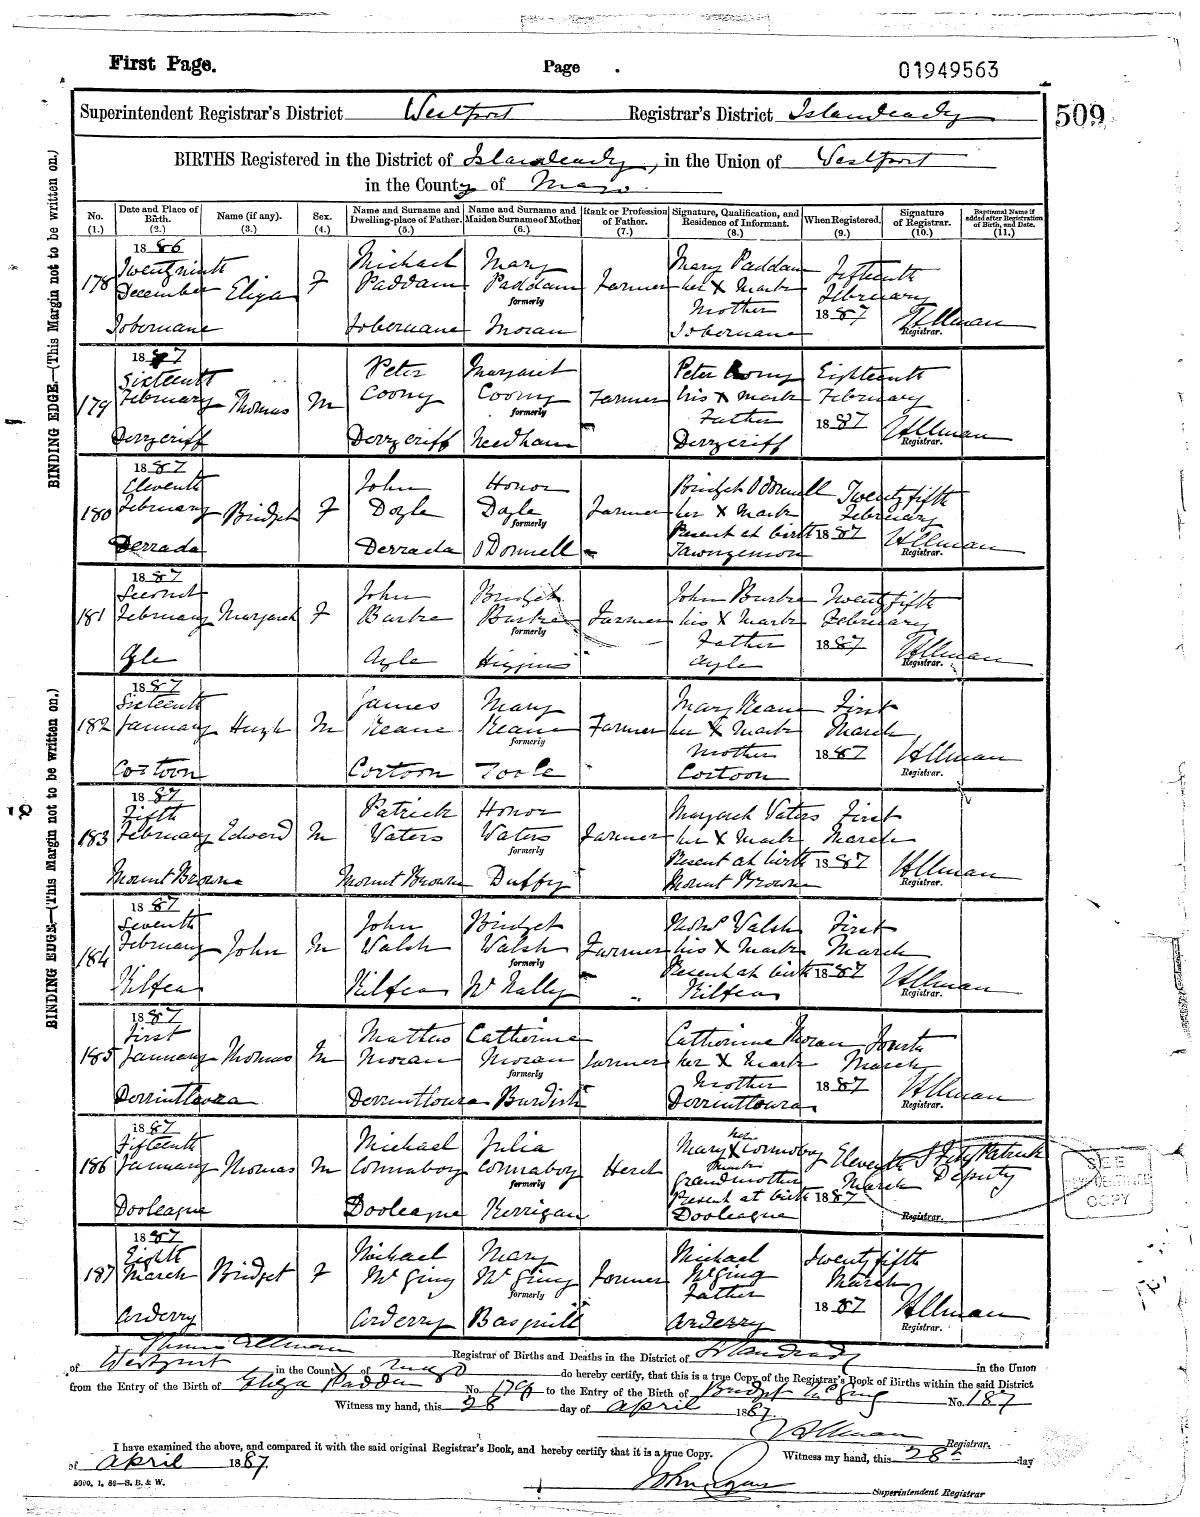 First Page. Page . 01949563
Superintendent Registrar's District Westport Registrar's District Islandeady 509
BIRTHS Registered in the District of Islandeady, in the Union of Westport
in the County of Mayo.
No. (1.) Date and Place of Birth. (2.) Name (if any). (3.) Sex. (4.) Name and Surname and Dwelling-place of Father. (5.) Name and Surname and Maiden Surname of Mother (6.) Rank or Profession of Father. (7.) Signature, Qualification, and Residence of Informant. (8.) When Registered. (9.) Signature of Registrar. (10.) Baptismal Name if added after Registration of Birth, and Date. (11.)
1886
Michael Mary Mary Paddan Fifteenth
178 Twenty ninth December Eliza F Paddan Paddan Farmer her X Mark February
formerly Mother 1887
Toberuane Toberuane Moran Toberuane Registrar.
1887
Sixteenth Peter Margaret Peter Coony Eighteenth
179 February Thomas M Coony Coony Farmer his X mark February
formerly Father 1887
Derrycriff Derrycriff Needham Derrycriff Registrar.
1887
Eleventh John Honor Bridget O'Donnell Twenty fifth
180 February Bridget F Doyle Doyle Farmer her X Mark February
formerly Present at birth 1887
Derrada Derrada O'Donnell Registrar.
1887
Second John Bridget John Burke Twenty fifth
181 February Margaret F Burke Burke Farmer his X Mark February
formerly Father 1887
Ayle Ayle Higgins Ayle Registrar.
1887
Sixteenth James Mary Mary Keane First
182 January Hugh M Keane Keane Farmer her X Mark March
formerly Mother 1887
Cortoon Cortoon Toole Cortoon Registrar.
1887
Fifth Patrick Honor Margaret Vaters First
183 February Edward M Vaters Waters Farmer her X Mark March
formerly Present at birth 1887
Mount Browne Mount Browne Duffy Mount Browne Registrar.
1887
Seventh John Bridget Walsh First
184 February John M Walsh Walsh Farmer his X Mark March
formerly Present at birth 1887
Kilfea Kilfea McNally Kilfea Registrar.
1887
First Mattus Catherine Catherine Moran Fourth
185 January Thomas M Moran Moran Farmer her X Mark March
formerly Mother 1887
Derrintloura Derrintloura Burdish Derrintloura Registrar.
1887
Fifteenth Michael Julia Mary X Connaboy Eleventh
her mark
186 January Thomas M Connaboy Connaboy Herd Grandmother March Deputy
formerly Present at birth 1887
Dooleague Dooleague Kerrigan Dooleague Registrar.
SEE
COPY
1887
Eighth Michael Mary Michael Twenty fifth
187 March Bridget F McGing McGing Farmer McGing March
formerly Father 1887
Arderry Arderry Basquill Arderry Registrar.
Thomas Allman Registrar of Births and Deaths in the District of Islandeady in the Union
of Westport in the County of Mayo do hereby certify, that this is a true Copy of the Registrar's Book of Births within the said District
from the Entry of the Birth of Eliza Paddan No. 178 to the Entry of the Birth of Bridget McGing No. 187
Witness my hand, this 28 day of April 1887.
Registrar.
I have examined the above, and compared it with the said original Registrar's Book, and hereby certify that it is a true Copy. Witness my hand, this 28th day
of April 1887.
5000. 1. 86—S. B. & W. Superintendent Registrar
BINDING EDGE—(This Margin not to be written on.)
BINDING EDGE—(This Margin not to be written on.)